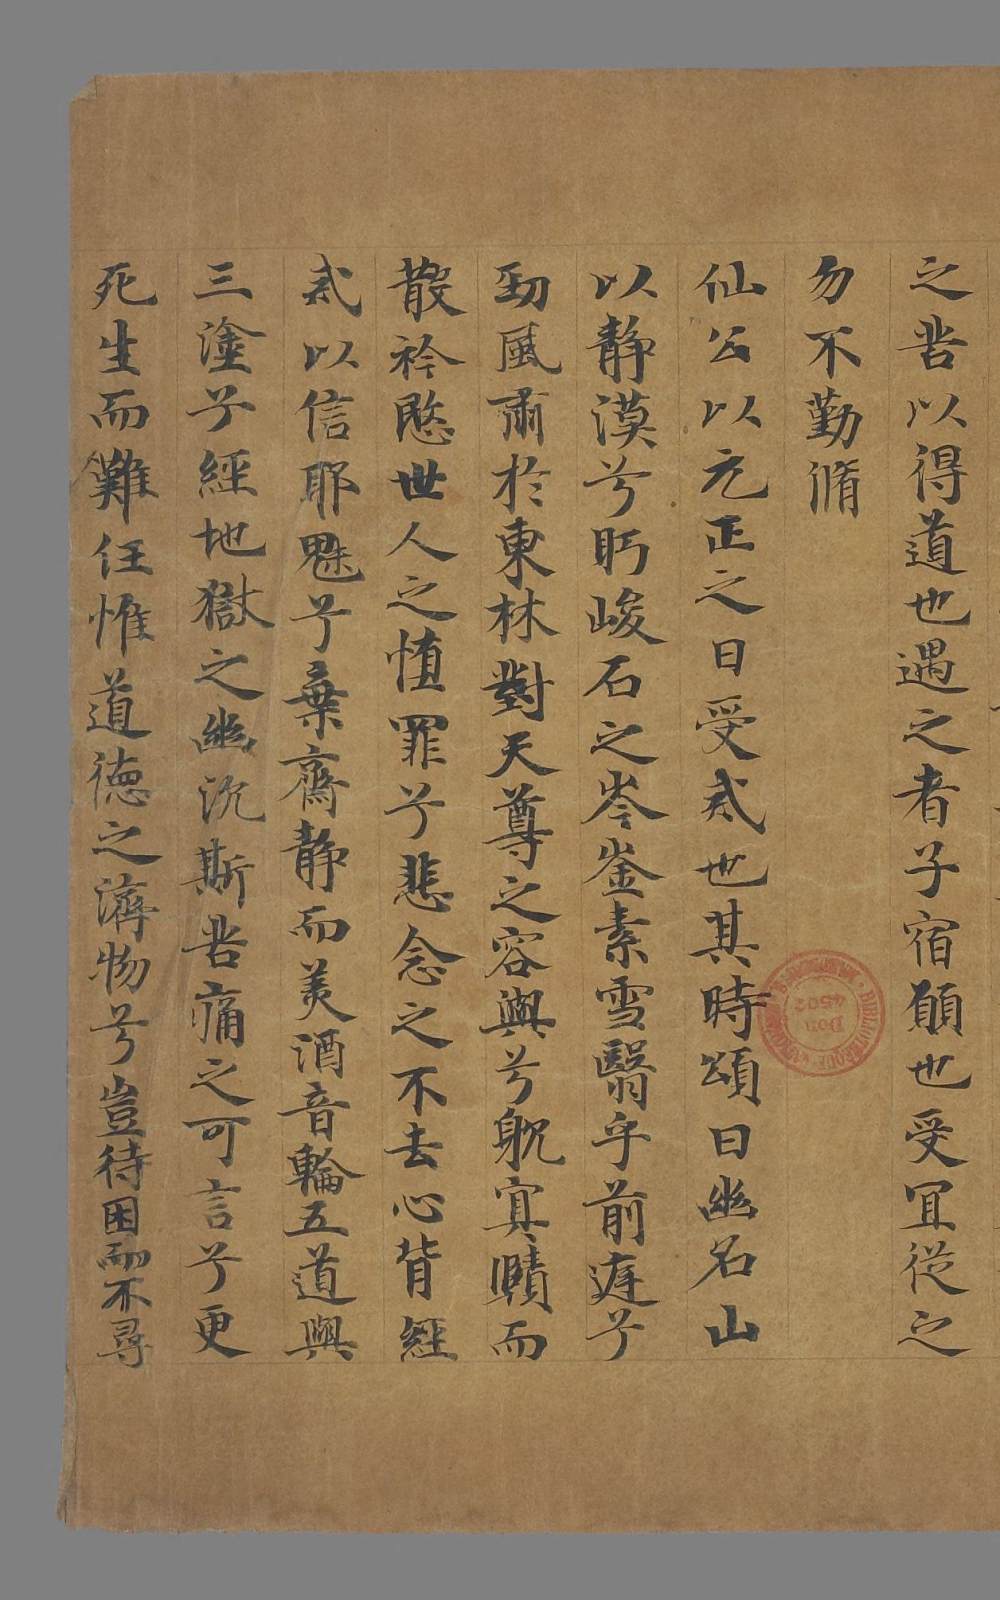 之苦以得道也遇之者子宿願也受宜從之
勿不勤脩
仙公以元正之日受貳也其時頌曰幽名山
以靜漠兮眄峻石之岑崟素雪翳乎前庭兮
勁風肅於東林對天尊之容與兮躭寘賾而
散衿愍世人之愼罪兮悲念之不去心背經
貳以信耶魅兮棄齋靜而羙酒音輪五道與
三塗兮經地獄之幽沉斯苦痛之可言兮更
死生而難任惟道德之濟物兮豈待困而不尋
BIBLIOTHEQUE
Don
4502